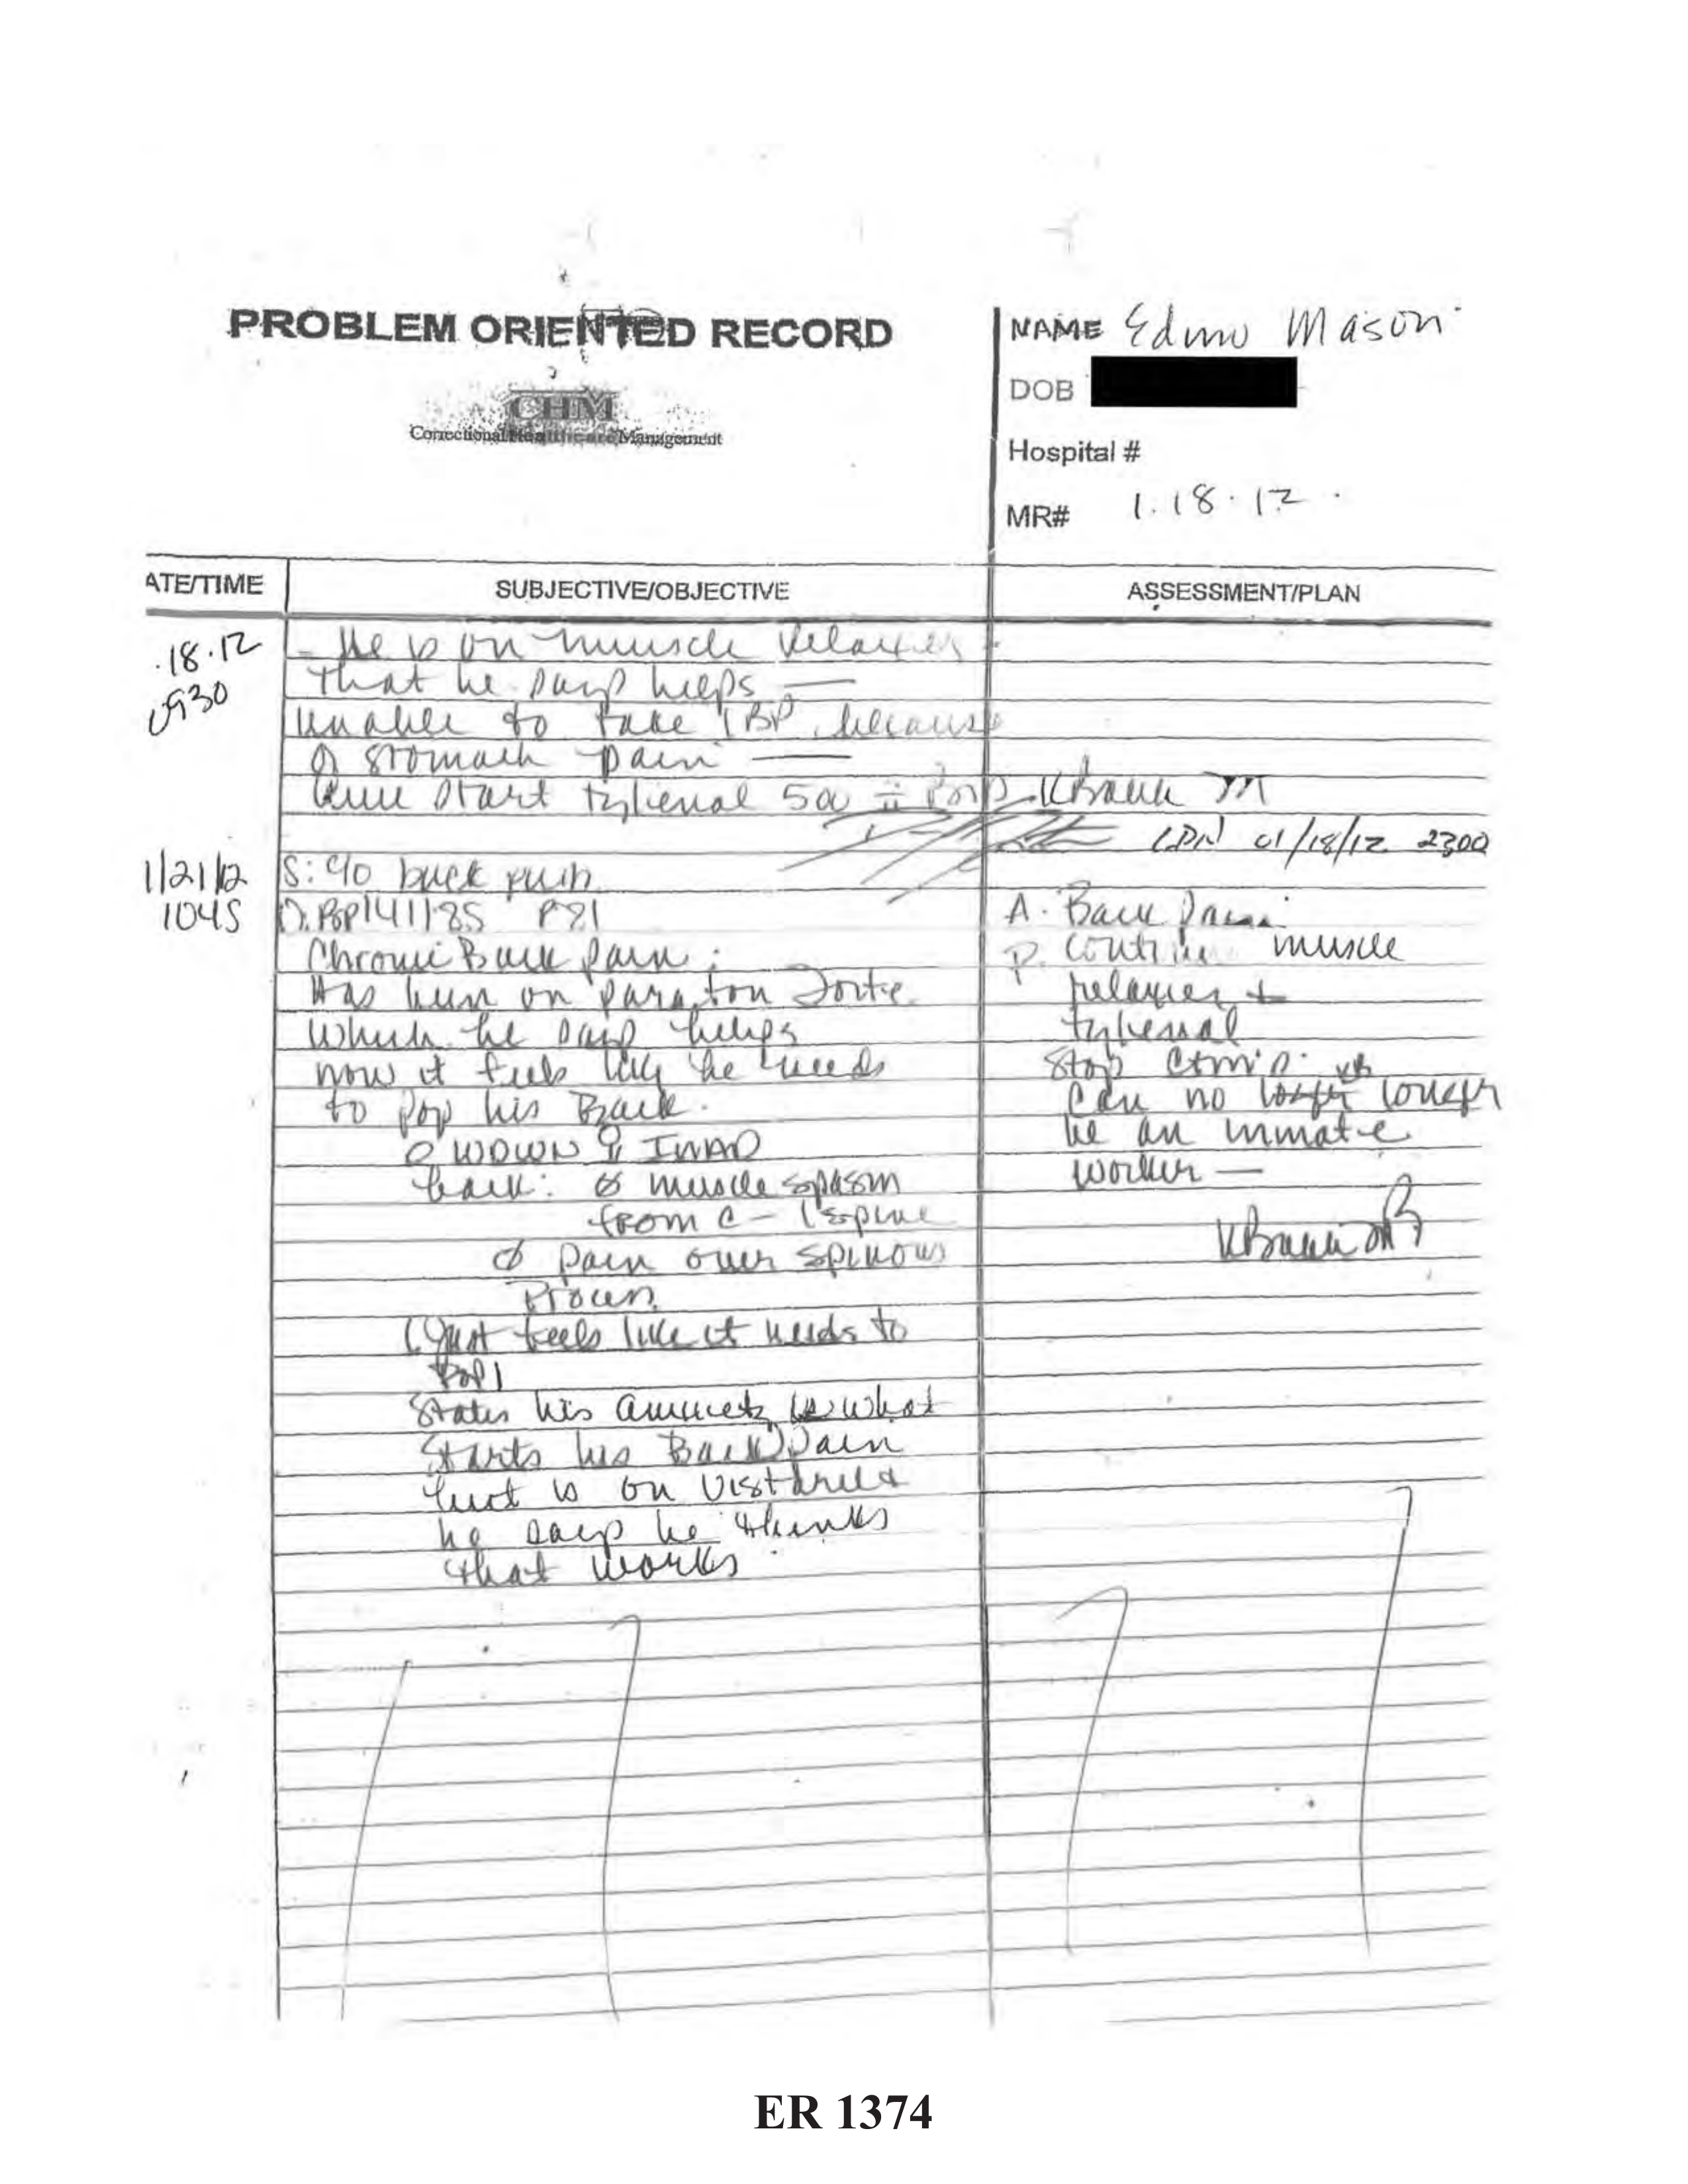 PROBLEM ORIENTED RECORD
CHM
Correctional Healthcare Management
NAME Edmo Mason
DOB
Hospital #
MR# 1.18.12
ATE/TIME
SUBJECTIVE/OBJECTIVE
ASSESSMENT/PLAN
.18.12
0930
- He is on muscle relaxer
that he says helps —
unable to take IBP because
of stomach pain —
start tylenol 500 ii
LPN 01/18/12 2300
1/21/12
1045
S: c/o back pain
O: BP 141/85 P81
Chronic Back Pain:
Has been on parafon Forte
which he says helps
now it feels like he needs
to pop his Back.
O WDWN INAD
back: ∅ muscle spasm
from C - L spine
∅ pain over spinous
Process
(just feels like it needs to
Pop)
States his anxiety is what
starts his Back Pain
but is on Vistaril &
he says he thinks
that works
A. Back Pain
P. Continue muscle
relaxer +
tylenol
Stop
Can no longer
be an inmate
worker —
ER 1374